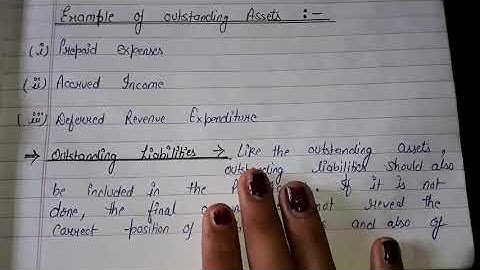 Example of outstanding Assets :-
(i) Prepaid expenses
(ii) Accrued Income
(iii) Deferred Revenue Expenditure
⇒ Outstanding Liabilities → Like the outstanding assets,
outstanding liabilities should also
be included in the If it is not
done, the final not reveal the
correct position of and also of